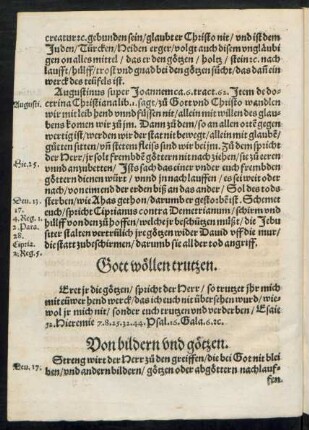 creatur ꝛc. gebunden sein/ glaubt er Christo nit/ vnd ist dem
Juden/ Türcken/ Heiden erger/ volgt auch disem vngläubi
gen on alles mittel/ das er den götzen/ holtz/ stein ꝛc. nach
laufft/ hülff/ trost vnd gnad bei den götzen sücht/ das dañ ein
werck des teüfels ist.
Augustinus super Joannem ca. 6. tract. 62. Item de do-
Augusti.
ctrina Christiana lib. 1. sagt/ zů Gott vnd Christo wandlen
wir mit leib hend vnnd füssen nit/ allein mit willen des glau
bens komen wir zů jm. Dann zů dem/ so an allen orte gegen
wertig ist/ werden wir der stat nit bewegt/ allein mit glaubẽ/
gütten sitten/ vñ
sind wir bei jm. Zů dem spricht
der Herr/ jr solt frembde göttern nit nach ziehen/ sie zů eren
Hie. 25.
vnnd anzubetten/ Ists sach das einer vnder euch frembden
göttern dienen würt/ vnnd jn nachlauffen/ es sei weit oder
nach/ von einem end der erden biß an das ander/ Sol des tods
sterben/ wie Ahas gethon/ darumb er gestorbẽ ist. Schemet
Deu. 13.
17.
euch/ spricht Ciprianus contra Demetrianum/ schirm vnd
4. Reg. 1.
hülff von den zů hoffen/ welche jr beschützen müßt/ die Jebu
2. Para.
28.
siter stalten vertrülich jre götzen wider Dauid vff die mur/
Cipria.
die statt zu beschirmen/ darumb sie all der tod angriff.
2. Reg. 5.
Gott wöllen trutzen.
Eret jr die götzen/ spricht der Herr/ so trutzt jhr mich
mit eüwer hend werck/ das ich euch nit übersehen wurd/ wie
wol jr mich nit/ sonder euch trutzen vnd verderben/ Esaie
52. Hieremie 7. 8. 25. 32. 44. Psal. 18. Gala. 6. ꝛc.
Von bildern vnd götzen.
Streng wirt der Herr zů den greiffen/ die bei Got nit blei
Leu. 17.
ben/ vnd andern bildern/ götzen oder abgöttern nachlauf-
fen.